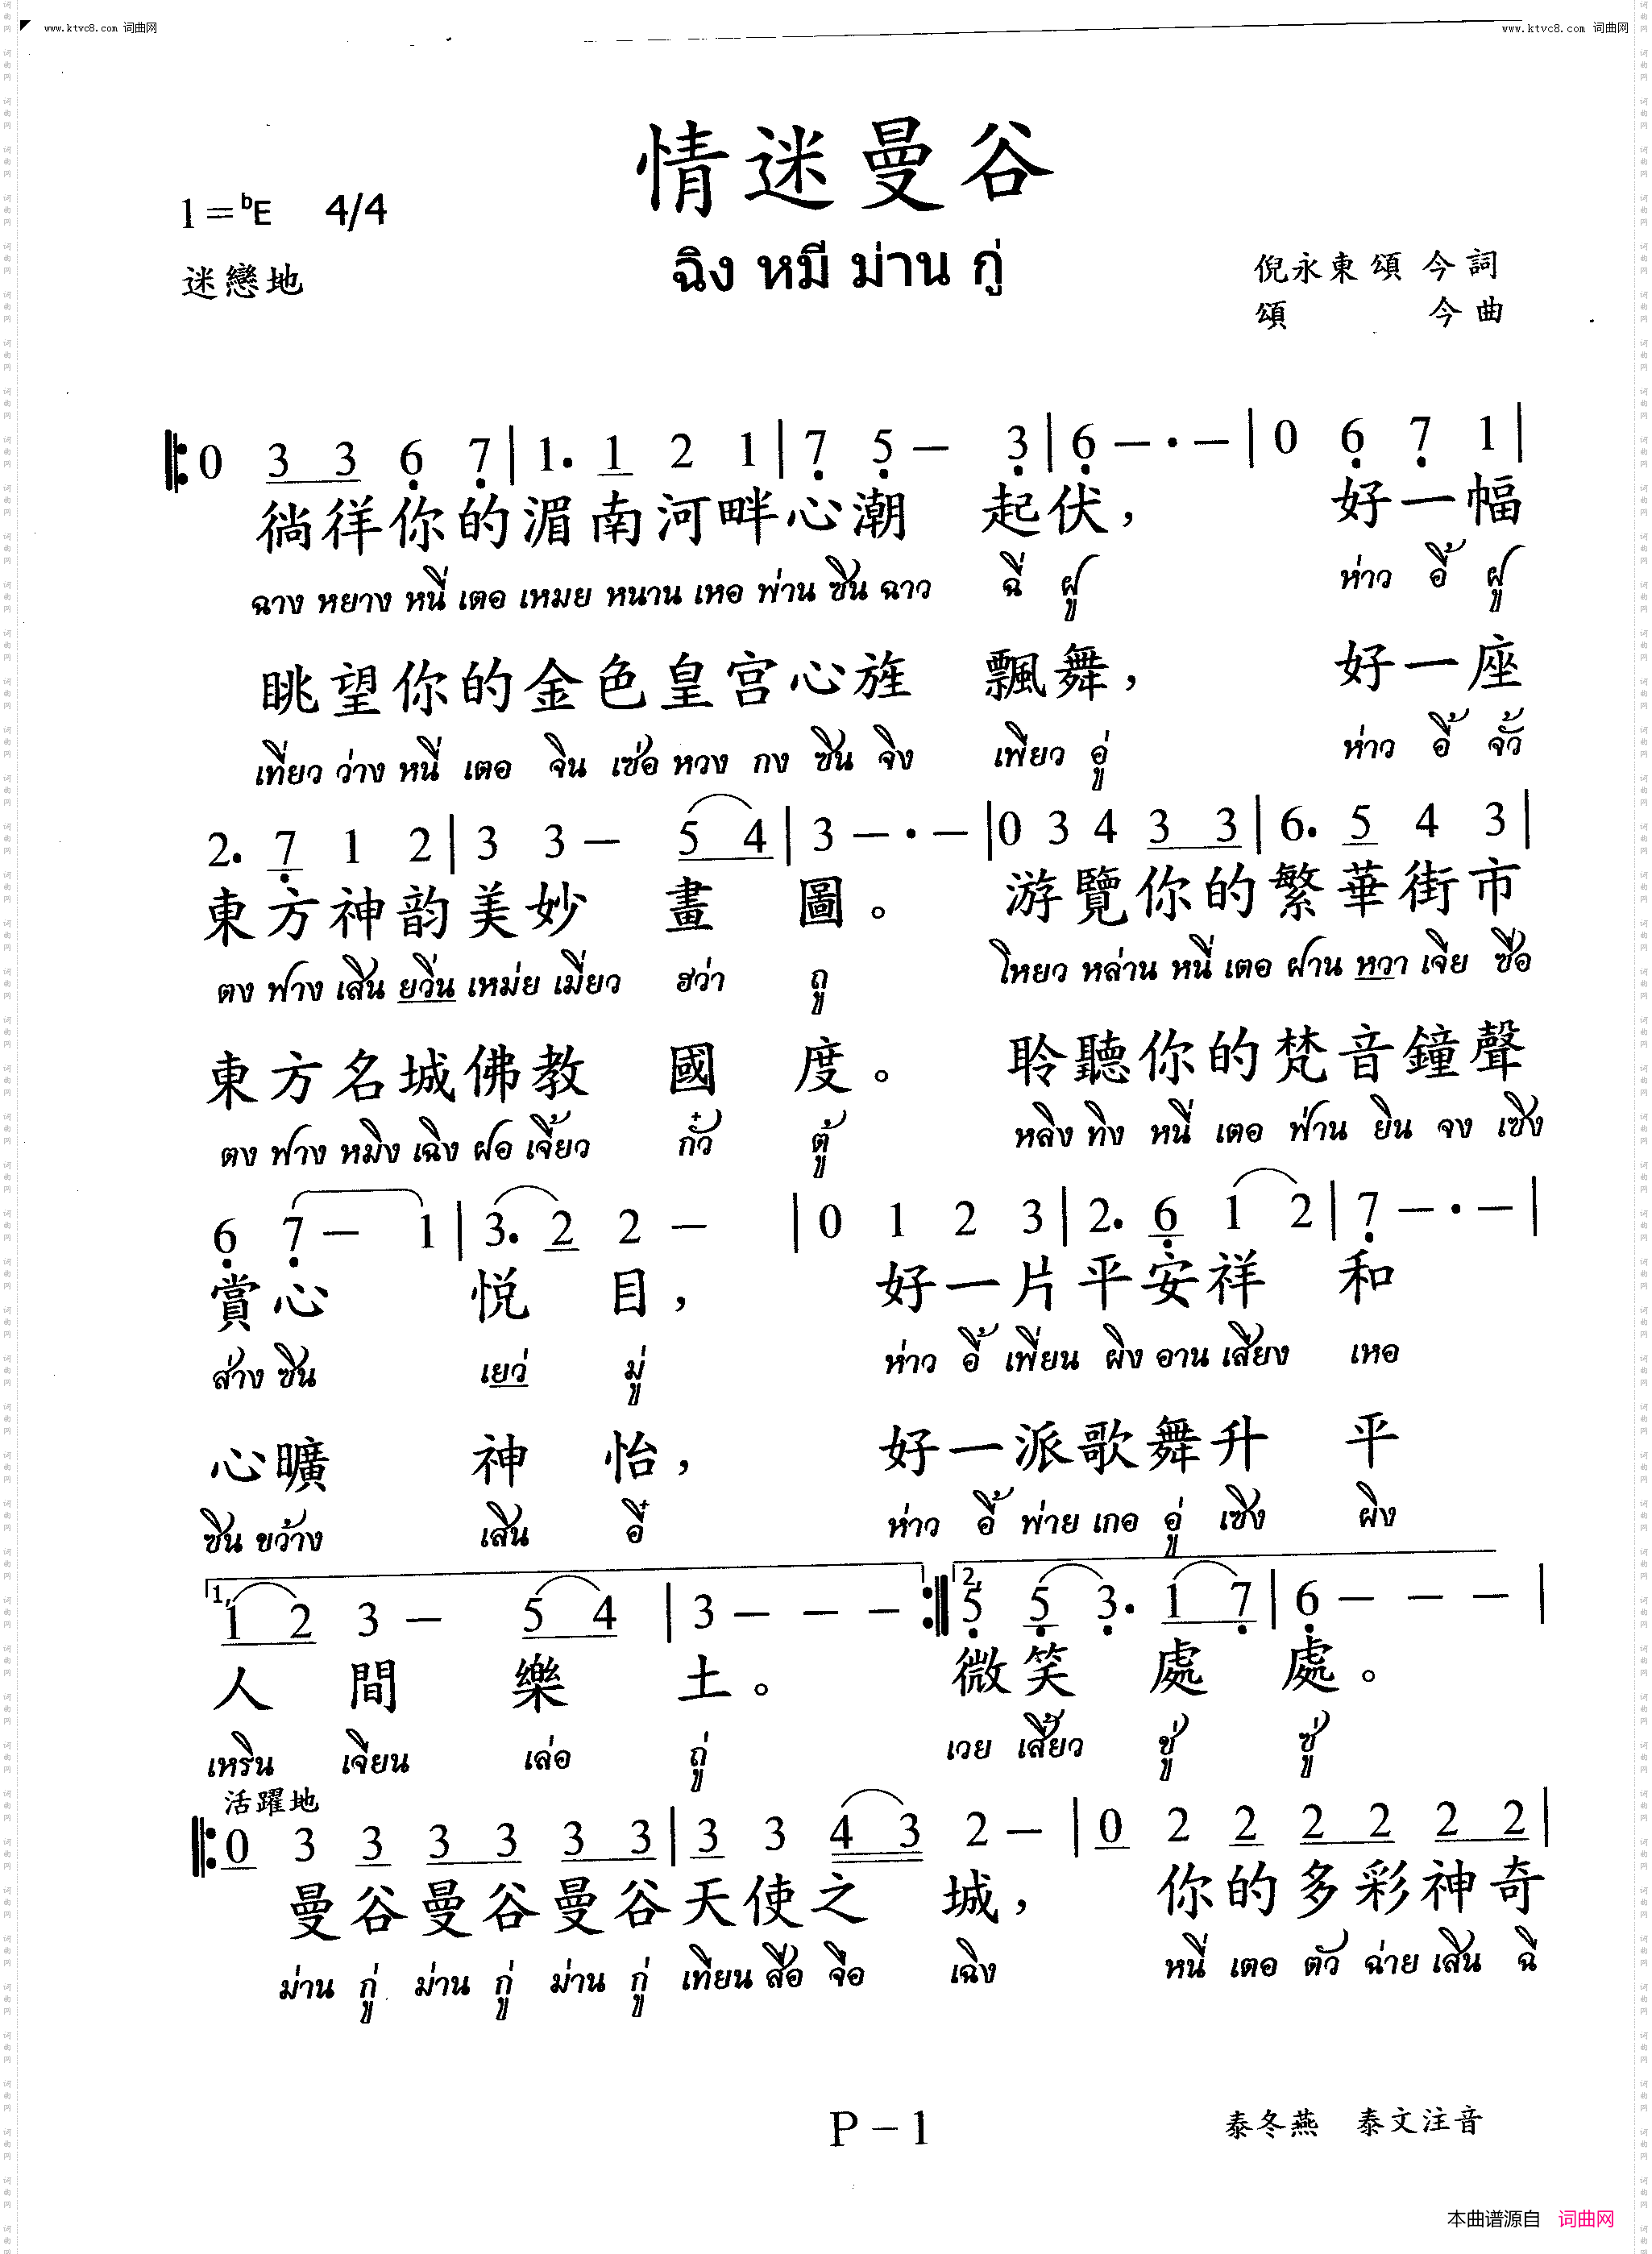 www.ktvc8.com 词曲网
www.ktvc8.com 词曲网
情迷曼谷
1=bE 4/4
ฉิง หมี ม่าน กู่
迷戀地
倪永東頌今詞
頌今曲
0 3 3 6 7 | 1. 1 2 1 | 7 5 – 3 | 6 – · – | 0 6 7 1 |
徜徉你的湄南河畔心潮 起伏， 好一幅
ฉาง หยาง หนี่ เตอ เหมย หนาน เหอ พ่าน ซิน ฉาว ฉี่ ฝู ห่าว อี้ ฝู
眺望你的金色皇宫心旌 飄舞， 好一座
เที่ยว ว่าง หนี่ เตอ จิน เซ่อ หวง กง ซิน จิง เพียว อู่ ห่าว อี้ จั้ว
2. 7 1 2 | 3 3 – 5 4 | 3 – · – | 0 3 4 3 3 | 6. 5 4 3 |
東方神韵美妙 畫 圖。 游覽你的繁華街市
ตง ฟาง เสิน ยวิ่น เหม่ย เมี่ยว ฮว่า ถู โหยว หล่าน หนี่ เตอ ฝาน หวา เจีย ซื่อ
東方名城佛教 國 度。 聆聽你的梵音鐘聲
ตง ฟาง หมิง เฉิง ฝอ เจี้ยว กั๋ว ตู้ หลิง ทิง หนี่ เตอ ฟ่าน ยิน จง เซิง
6 7 – 1 | 3. 2 2 – | 0 1 2 3 | 2. 6 1 2 | 7 – · – |
賞心 悦 目， 好一片平安祥 和
ส่าง ซิน เยว่ มู่ ห่าว อี้ เพี่ยน ผิง อาน เสียง เหอ
心曠 神 怡， 好一派歌舞升 平
ซิน ขว้าง เสิน อี๋ ห่าว อี้ พ่าย เกอ อู่ เซิง ผิง
1, 1 2 3 – 5 4 | 3 – – – :‖ 2, 5 5 3. 1 7 | 6 – – – |
人 間 樂 土。 微笑 處 處。
เหริน เจียน เล่อ ถู่ เวย เสี้ยว ชู่ ซู่
活躍地
0 3 3 3 3 3 3 | 3 3 4 3 2 – | 0 2 2 2 2 2 2 |
曼谷曼谷曼谷天使之 城， 你的多彩神奇
ม่าน กู่ ม่าน กู่ ม่าน กู่ เทียน สื่อ จือ เฉิง หนี่ เตอ ตัว ฉ่าย เสิน ฉี
P – 1
泰冬燕 泰文注音
本曲谱源自 词曲网